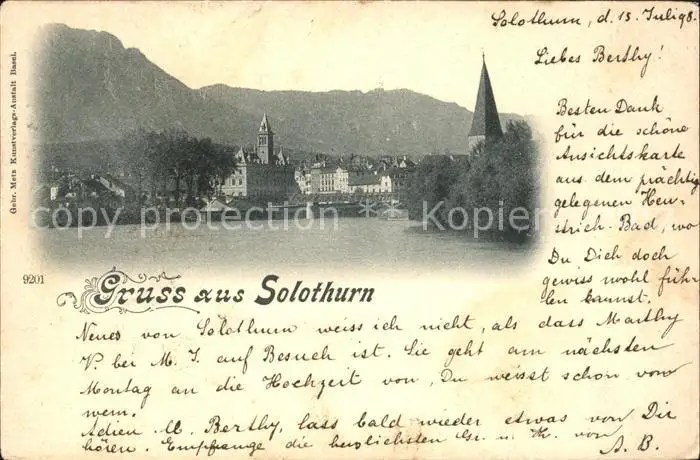 Solothurn, d. 15. Juli 98.
Liebes Berthy!
Besten Dank
für die schöne
Ansichtskarte
aus dem prächtig
gelegenen Heu-
strich-Bad, wo
Du Dich doch
gewiss wohl füh-
len kannst.
Gebr. Metz Kunstverlags-Anstalt Basel.
copy pokoyo copy pokoyo
9201
Gruss aus Solothurn
Neues von Solothurn weiss ich nicht, als dass Marthy
V. bei M. J. auf Besuch ist. Sie geht am nächsten
Montag an die Hochzeit von, Du weisst schon von
wem.
Adieu Berthy, lass bald wieder etwas von Dir
hören. Empfange die herzlichsten Gr. u. K. von
A. B.